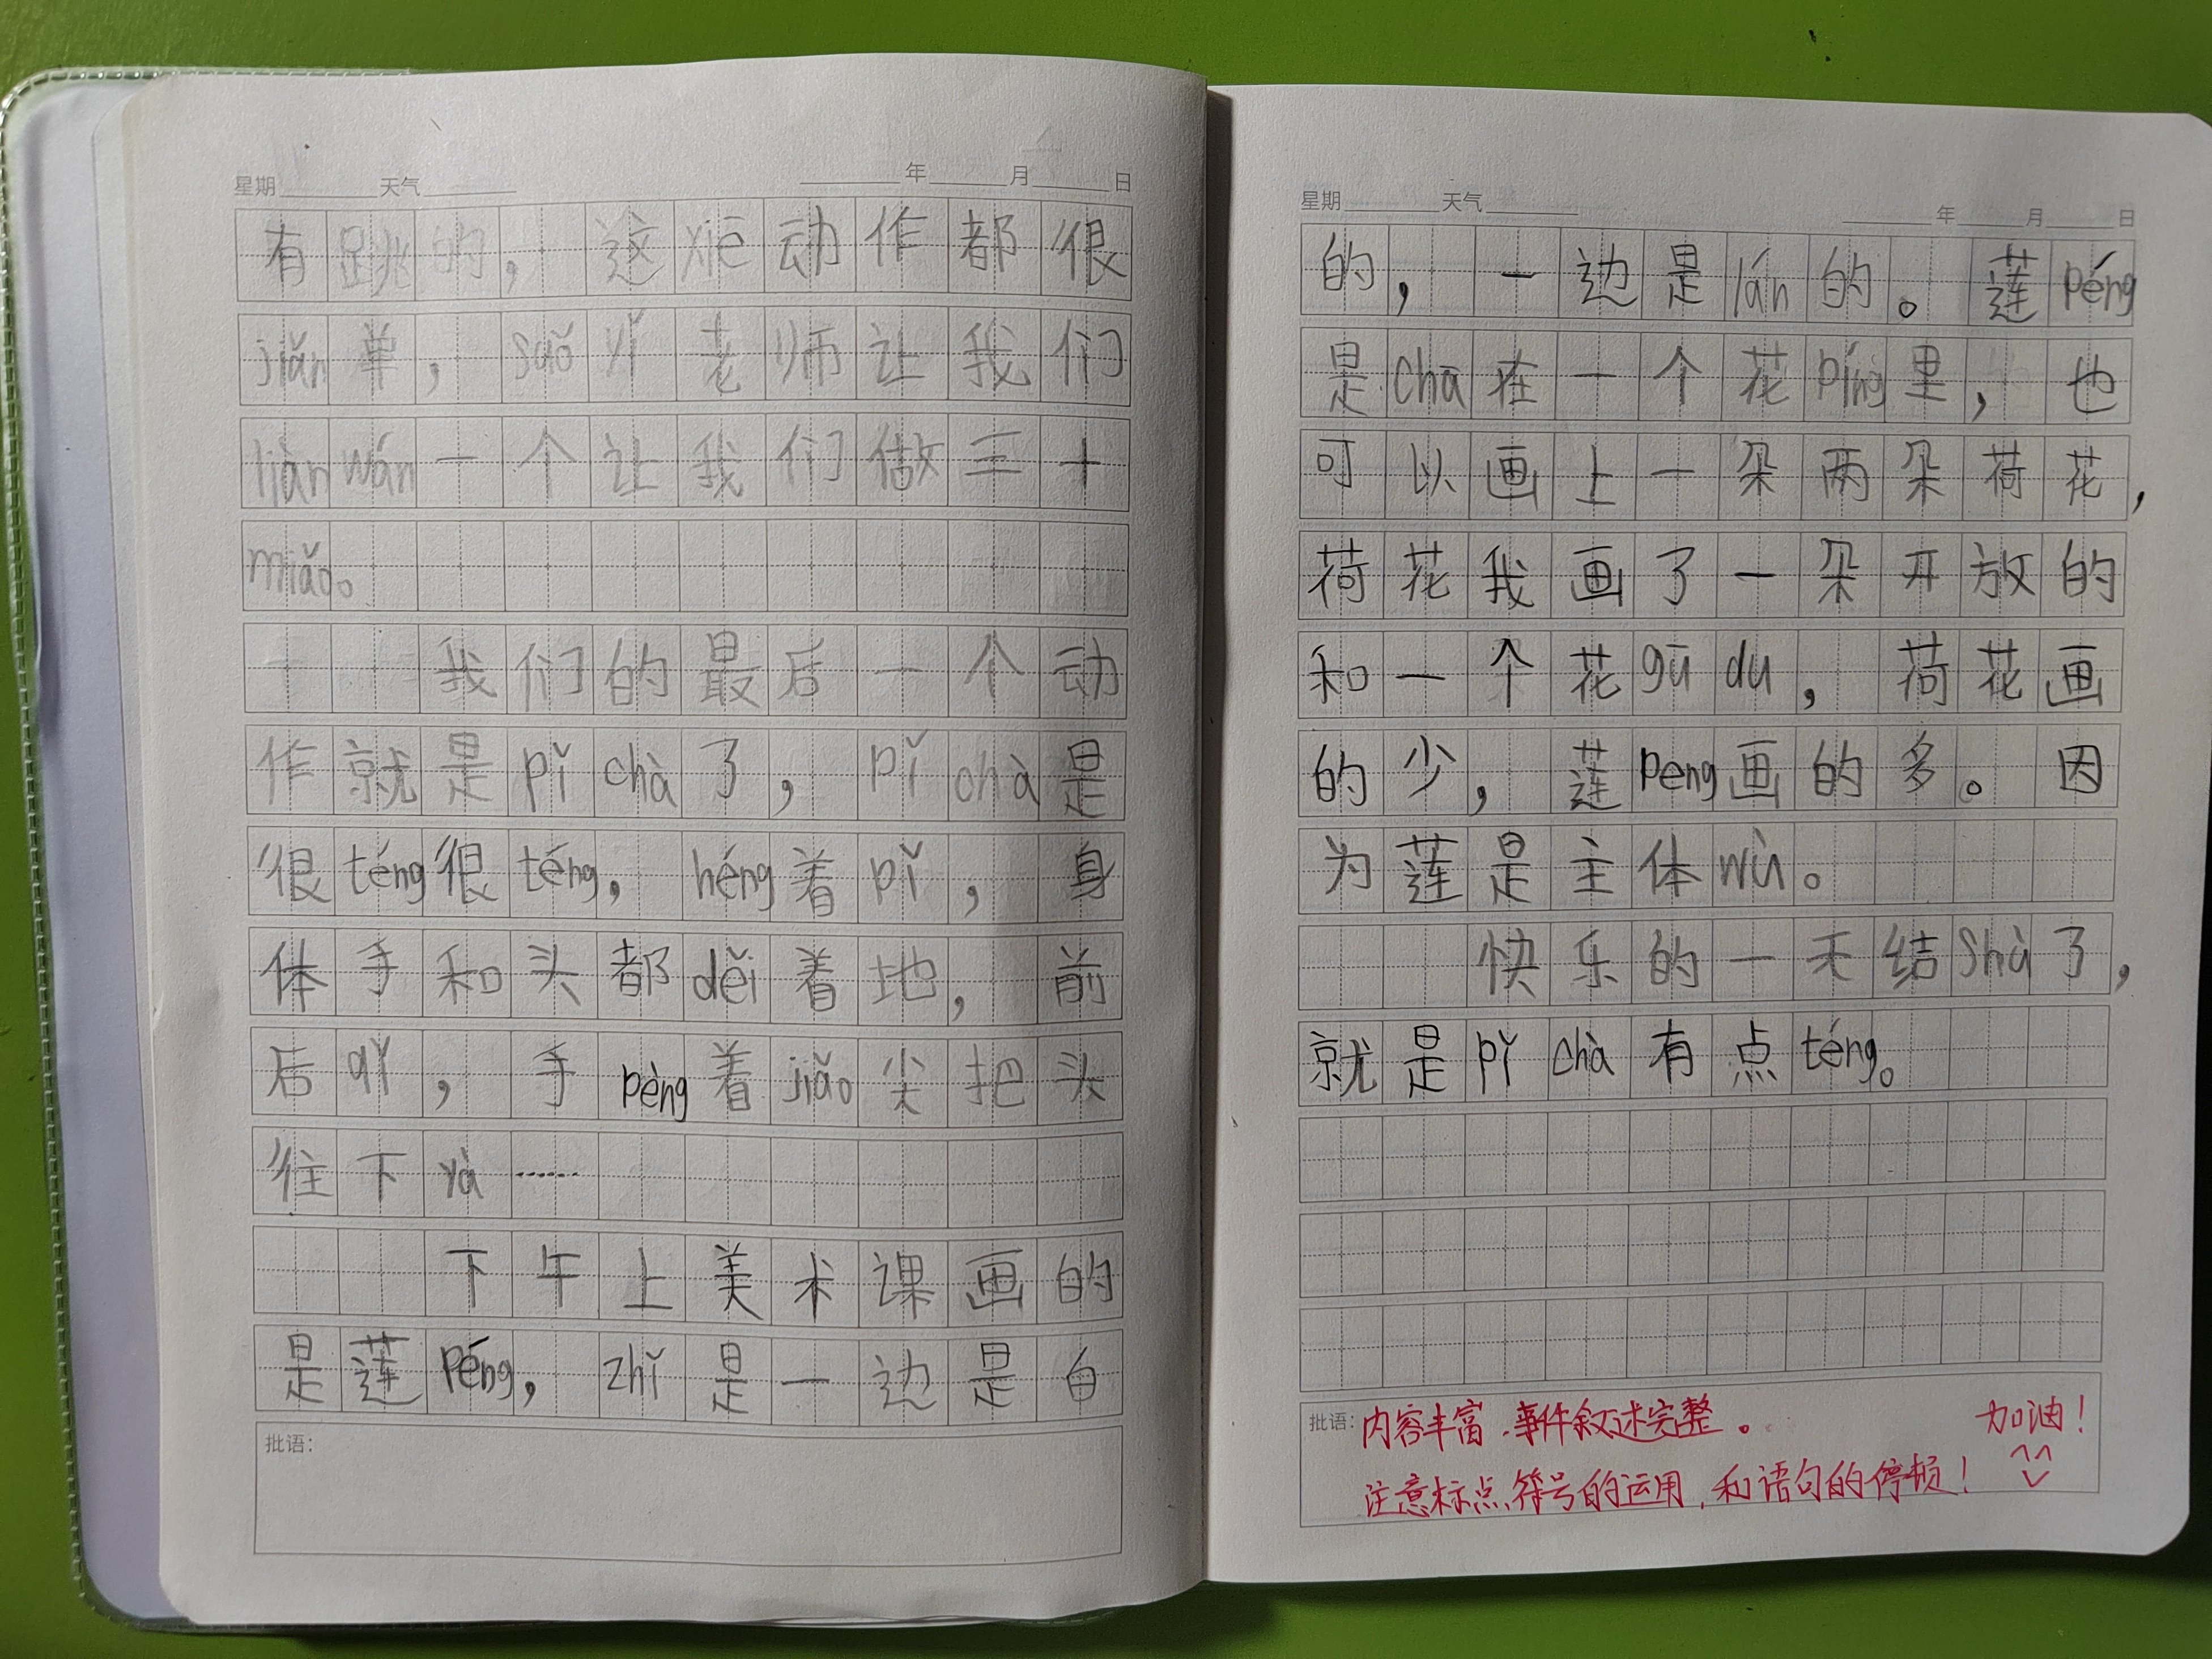 星期 天气 年 月 日
有跳的，这xiē动作都很
jiǎn单，suǒ yǐ老师让我们
liàn wán一个让我们做三十
miǎo。
我们的最后一个动
作就是pǐ chà了，pǐ chà是
很téng很téng，héng着pǐ，身
体手和头都děi着地，前
后qǐ，手pèng着jiǎo尖把头
往下yà……
下午上美术课画的
是莲Péng，zhǐ是一边是白
批语：
星期 天气 年 月 日
的，一边是lán的。莲péng
是chā在一个花píng里，也
可以画上一朵两朵荷花，
荷花我画了一朵开放的
和一个花gū du，荷花画
的少，莲peng画的多。因
为莲是主体wù。
快乐的一天结Shù了，
就是pǐ chà有点téng。
批语：内容丰富，事件叙述完整。 加油！
注意标点符号的运用，和语句的停顿！